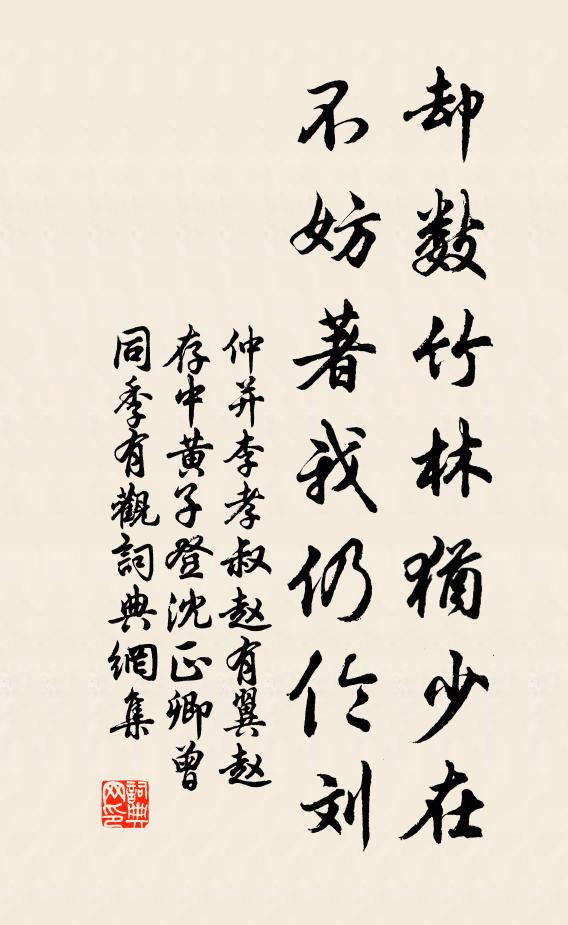 却数竹林犹少在
不妨著我仍伶刘
仲并李孝叔赵有翼赵
存中黄子登沈正卿曾
同季有觀詞典網集
詞典
网印